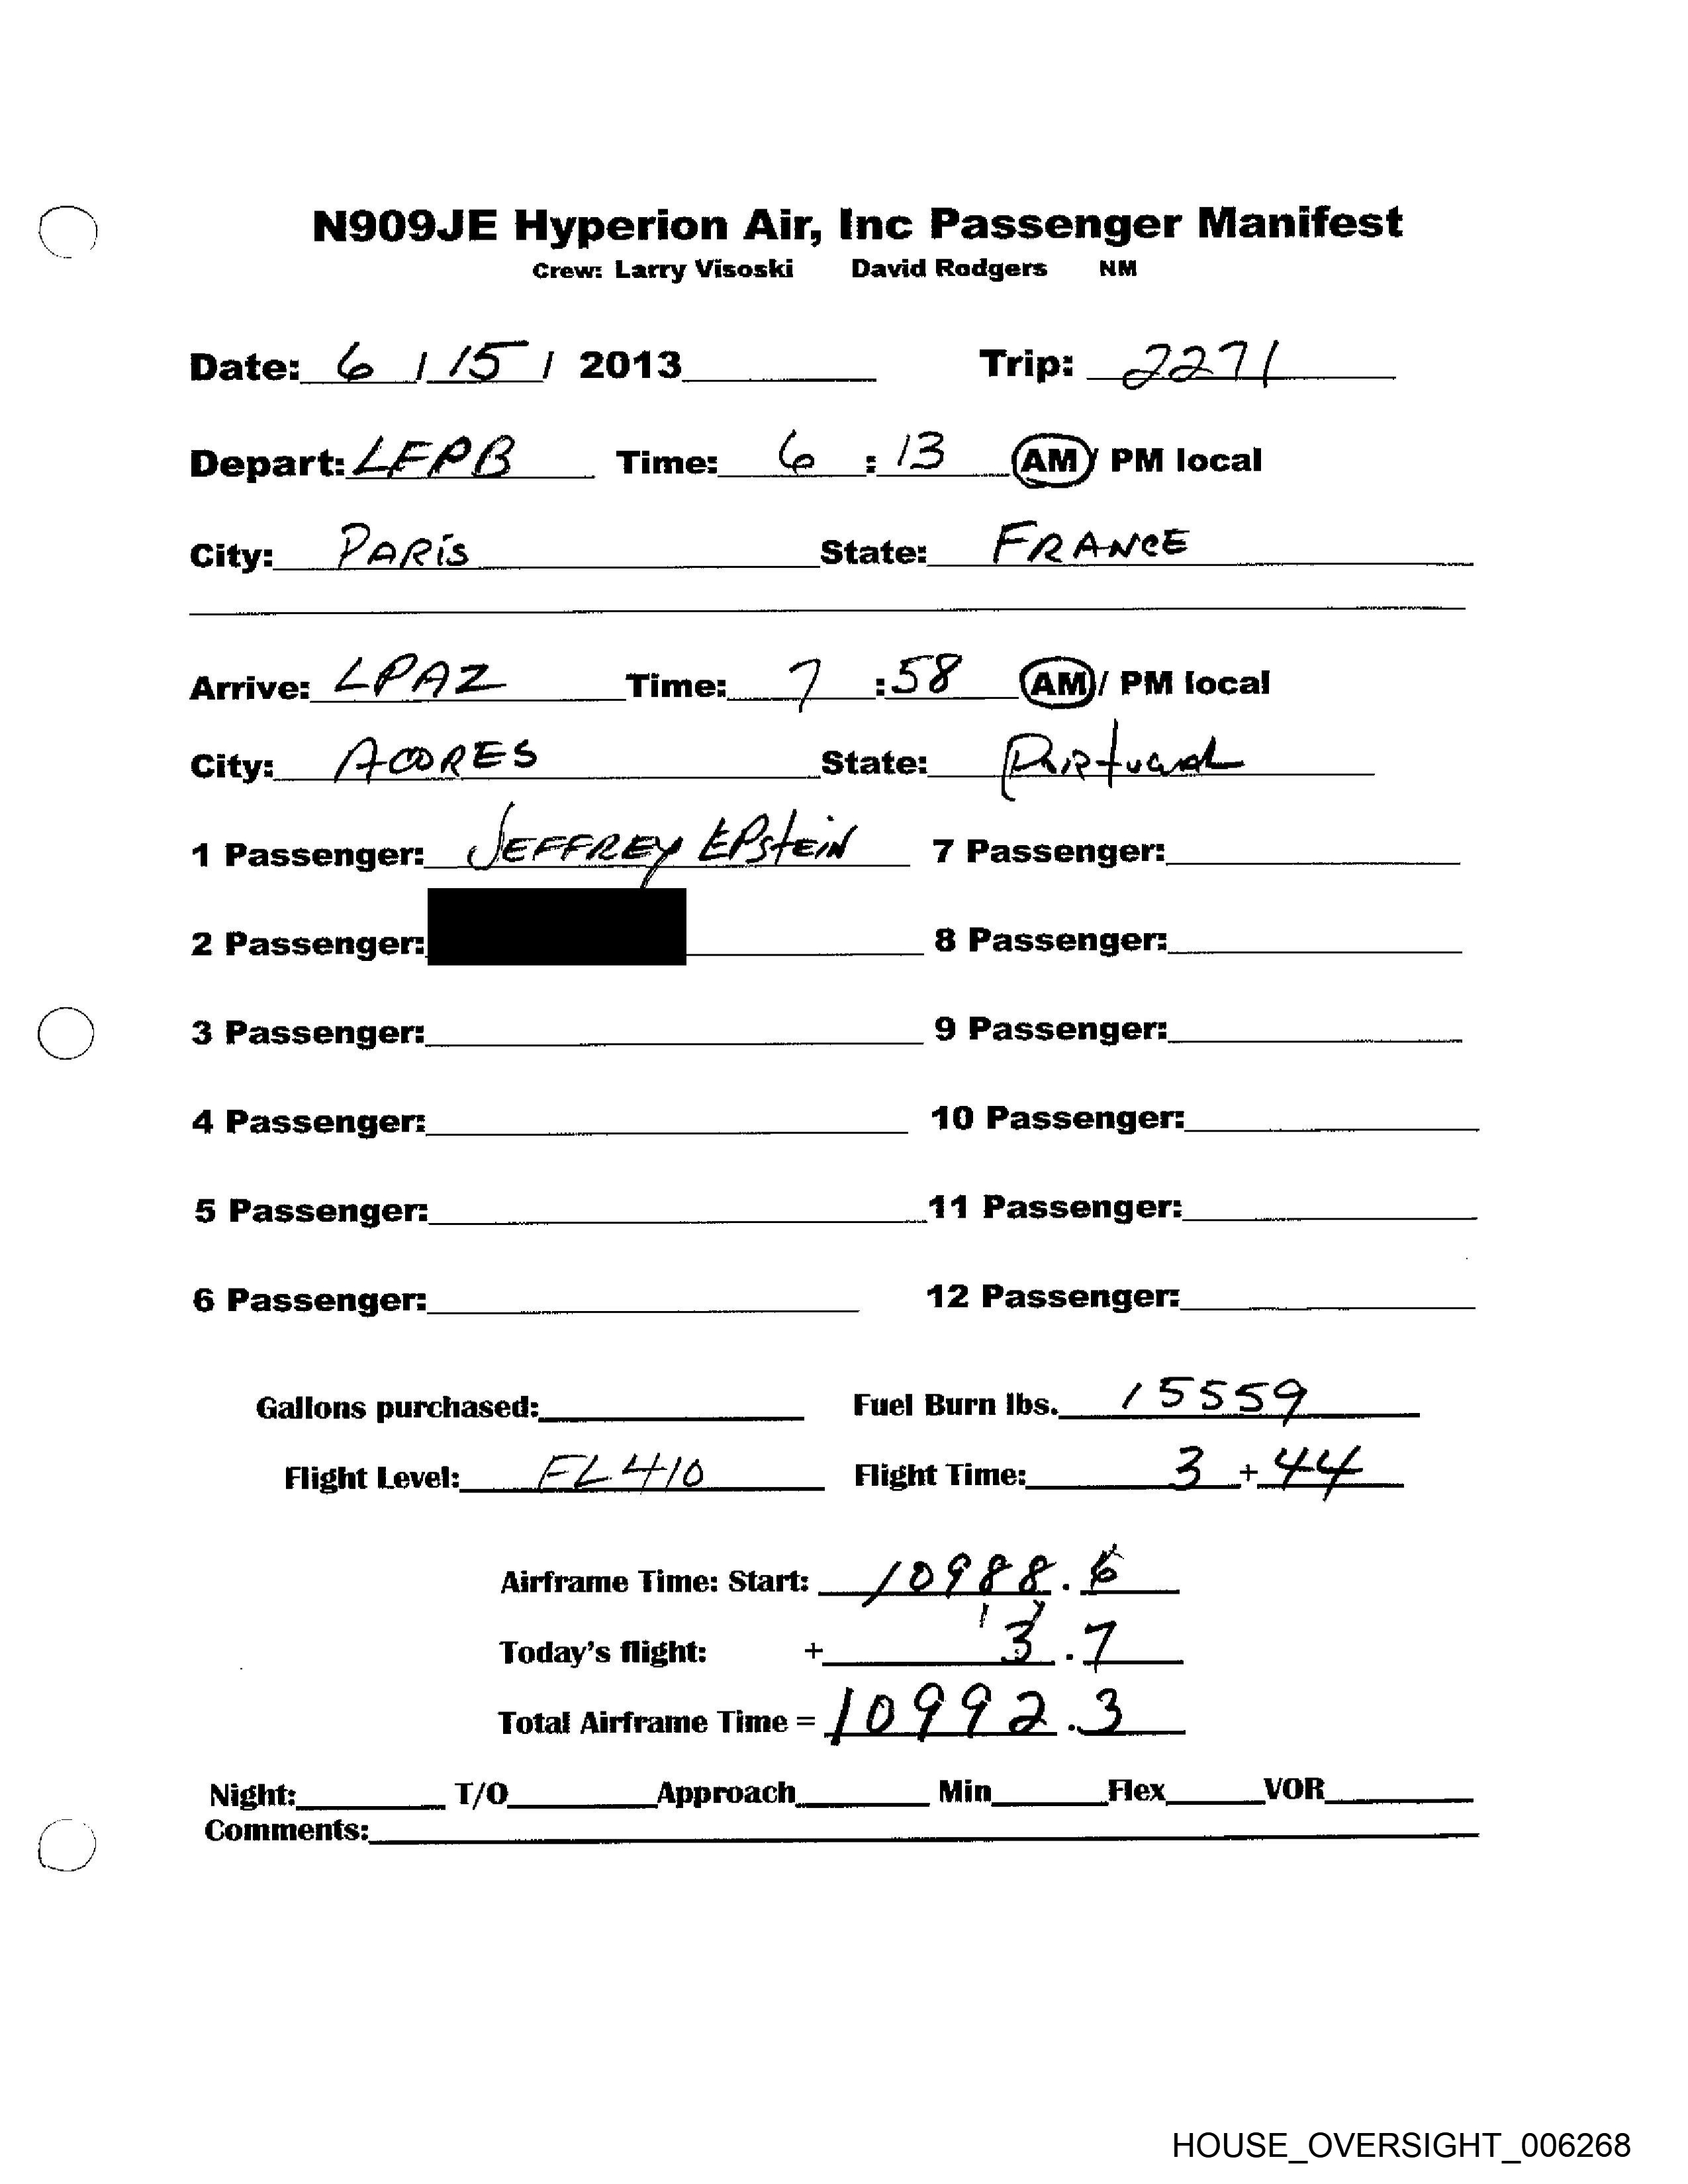 N909JE Hyperion Air, Inc Passenger Manifest
Crew: Larry Visoski David Rodgers NM
Date: 6 / 15 / 2013 Trip: 2271
Depart: LFPB Time: 6 : 13 AM / PM local
City: PARIS State: FRANCE
Arrive: LPAZ Time: 7 : 58 AM / PM local
City: ACORES State: Portugal
1 Passenger: JEFFREY EPSTEIN 7 Passenger:
2 Passenger: 8 Passenger:
3 Passenger: 9 Passenger:
4 Passenger: 10 Passenger:
5 Passenger: 11 Passenger:
6 Passenger: 12 Passenger:
Gallons purchased: Fuel Burn lbs. 15559
Flight Level: FL410 Flight Time: 3 + 44
Airframe Time: Start: 10988.6
Today's flight: + 3.7
Total Airframe Time = 10992.3
Night: T/O Approach Min Flex VOR
Comments:
HOUSE_OVERSIGHT_006268